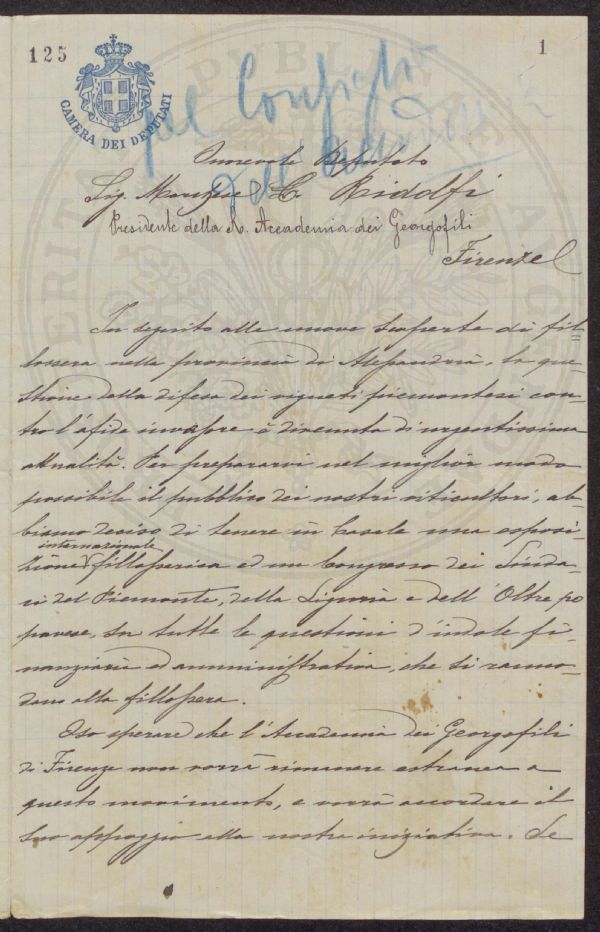 125
1
CAMERA DEI DEPUTATI
pel Consiglio
dell'Accademia
Onorevole Deputato
Sig. Marchese C. Ridolfi
Presidente della R. Accademia dei Georgofili
Firenze
In seguito alle nuove scoperte di fil-
lossera nella provincia di Alessandria, la que-
stione della difesa dei vigneti piemontesi con-
tro l'afide invasore è divenuta di urgentissima
attualità. Per prepararvi nel miglior modo
possibile il pubblico dei nostri viticultori, ab-
biamo deciso di tenere in Casale una esposi-
internazionale
zione fillosserica ed un Congresso dei Sinda-
ci del Piemonte, della Liguria e dell'Oltre po
pavese, su tutte le questioni d'indole fi-
nanziaria ed amministrativa, che si ranno-
dano alla fillossera.
Oso sperare che l'Accademia dei Georgofili
di Firenze non vorrà rimanere estranea a
questo movimento, e vorrà accordare il
suo appoggio alla nostra iniziativa. Se